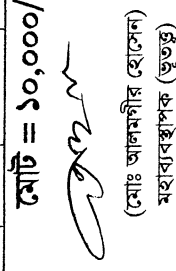 মোট = ১০,০০০/
(মোঃ আলমগীর হোসেন)
মহাব্যবস্থাপক (ভূতত্ত্ব)